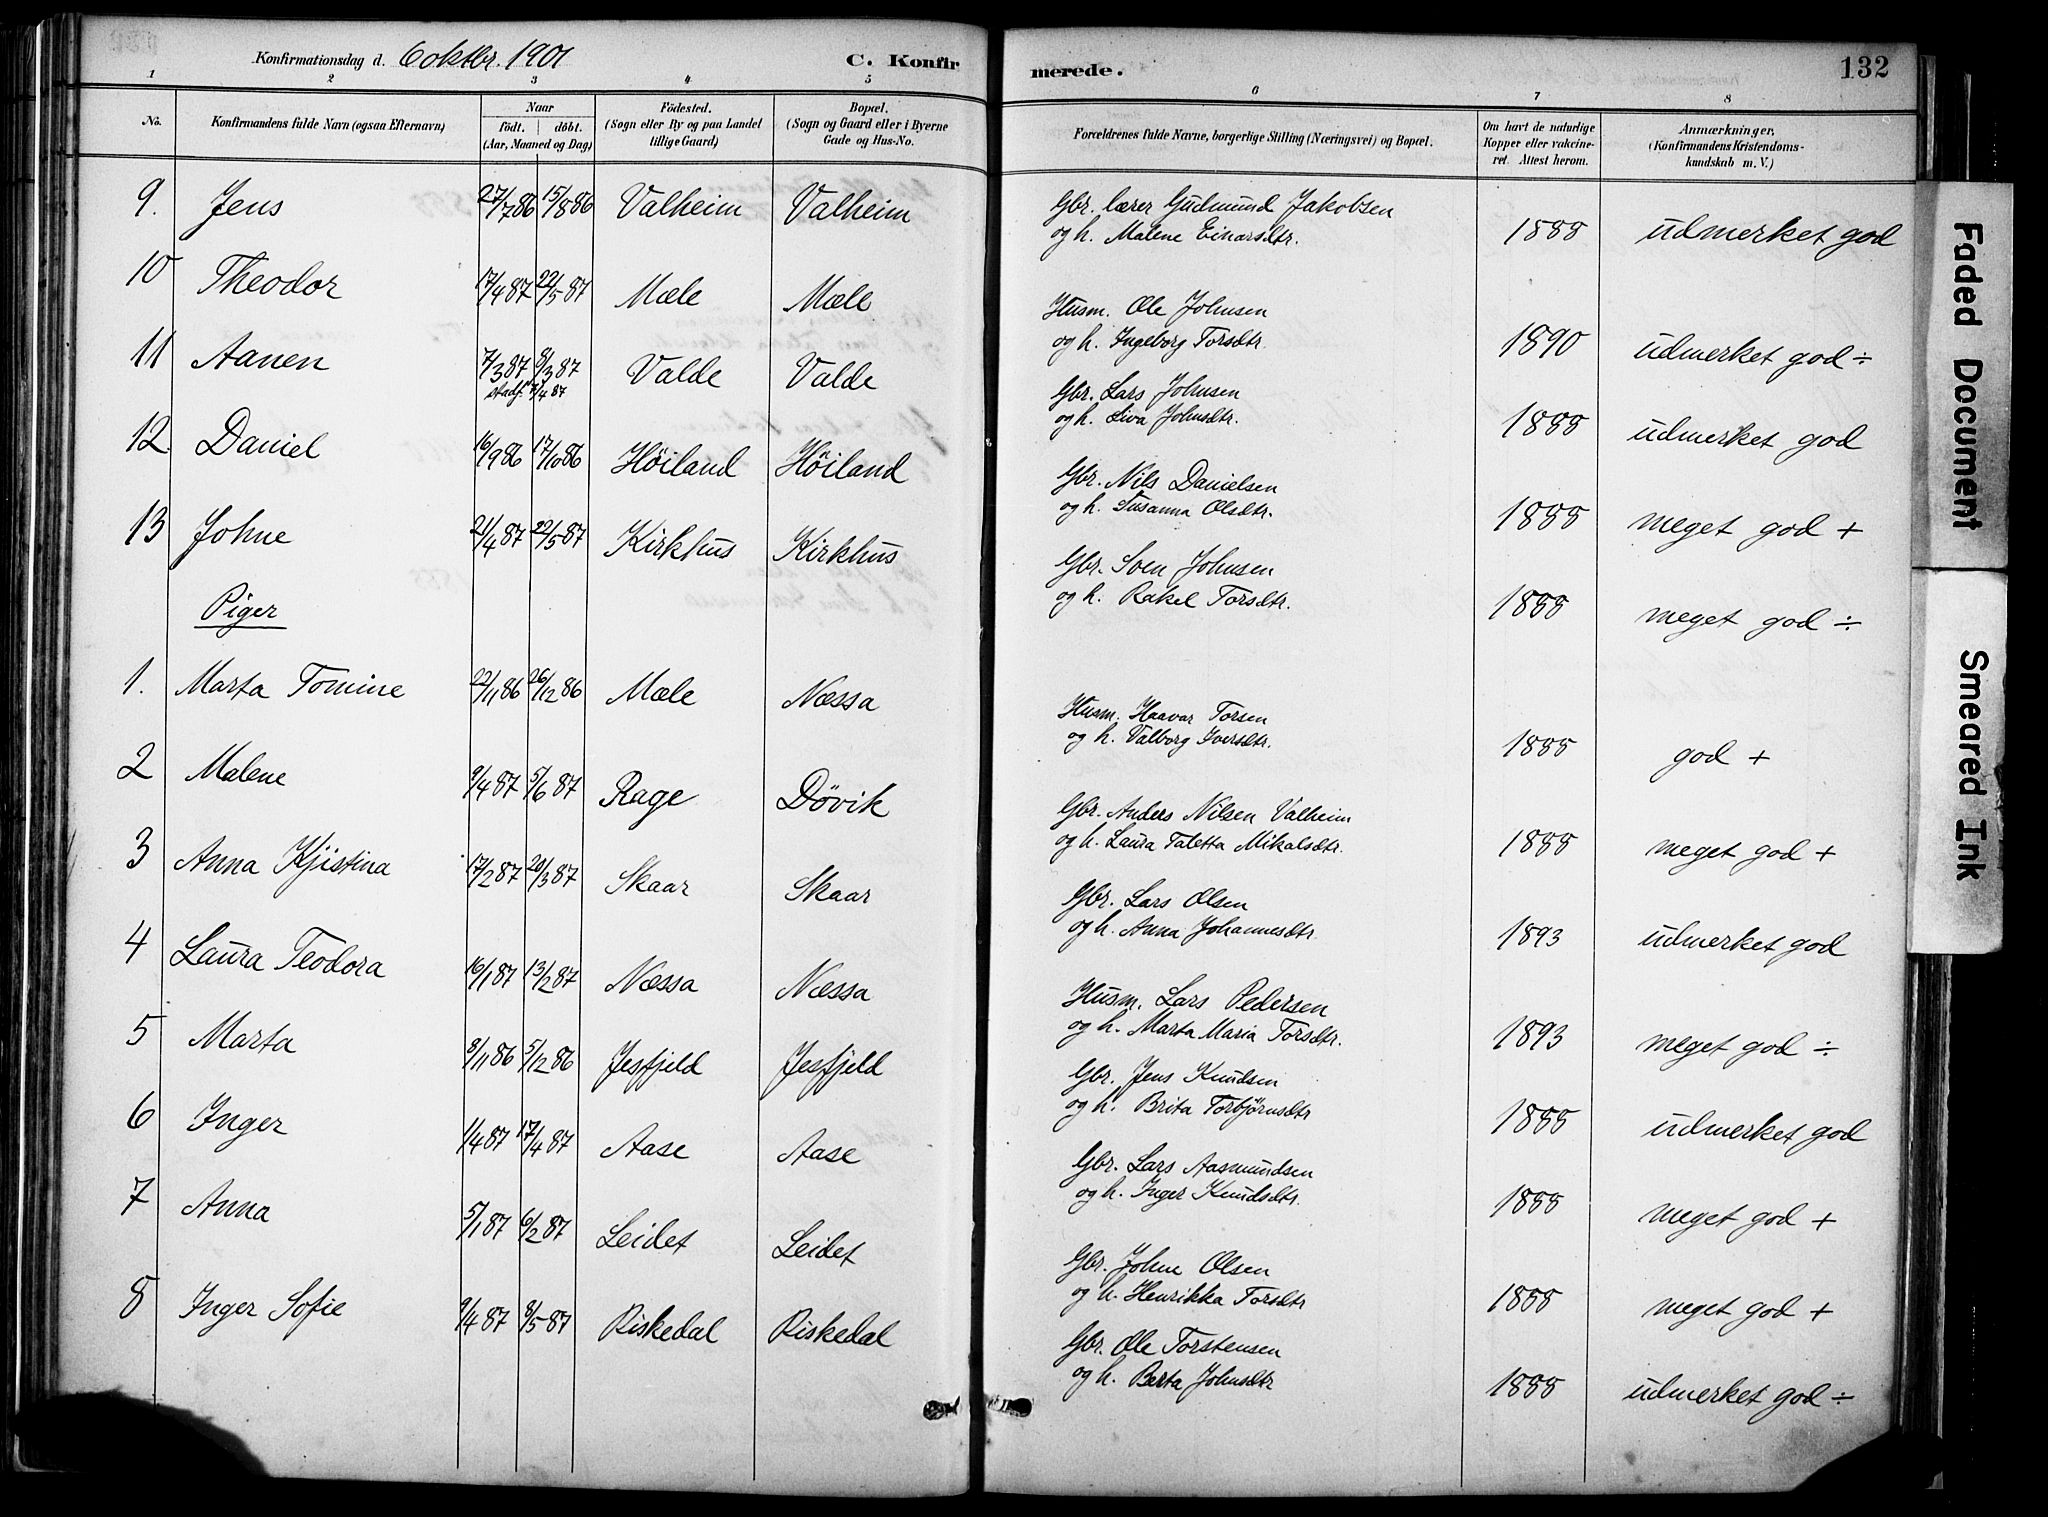 Konfirmationsdag d. 6 oktbr. 1901 C. Konfirmerede. 132
1 2 3 4 5 6 7 8
No. Konfirmandens fulde Navn (ogsaa Efternavn) Naar födt. döbt. (Aar, Maaned og Dag) Födested. (Sogn eller By og paa Landet tillige Gaard) Bopæl. (Sogn og Gaard eller i Byerne Gade og Hus-No. Forældrenes fulde Navne, borgerlige Stilling (Næringsvei) og Bopæl. Om havt de naturlige Kopper eller vakcineret. Attest herom. Anmærkninger. (Konfirmandens Kristendomskundskab m. V.)
9. Jens 27/7 86 15/8 86 Valheim Valheim Gbr. lærer Gudmund Jakobsen
og h. Malene Einarsdtr. 1888 udmerket god
10 Theodor 17/4 87 22/5 87 Mæle Mæle Husm. Ole Johnsen
og h. Ingeborg Torsdtr. 1890 udmerket god ÷
11 Aanen 7/3 87 8/3 87 Valde Valde Gbr. Lars Johnsen
stadf. 17/4 87 og h. Siva Johnsdtr. 1888 udmerket god
12 Daniel 16/9 86 17/10 86 Höiland Höiland Gbr. Nils Danielsen
og h. Susanna Olsdtr. 1888 meget god +
13 Johne 21/4 87 22/5 87 Kirkhus Kirkhus Gbr. Sven Johnsen
og h. Rakel Torsdtr. 1888 meget god ÷
Piger
1. Marta Tomine 22/11 86 26/12 86 Mæle Næssa Husm. Haavar Torsen
og h. Valborg Iversdtr. 1888 god +
2 Malene 9/4 87 5/6 87 Rage Dövik Gbr. Anders Nilsen Valheim
og h. Laura Taletta Mikalsdtr. 1888 meget god +
3 Anna Kjistina 17/2 87 20/3 87 Skaar Skaar Gbr. Lars Olsen
og h. Anna Johannesdtr. 1893 udmerket god
4 Laura Teodora 16/1 87 13/2 87 Næssa Næssa Husm. Lars Pedersen
og h. Marta Maria Torsdtr. 1893 meget god ÷
5 Marta 8/11 86 5/12 86 Jesfjeld Jesfjeld Gbr. Jens Knudsen
og h. Brita Torbjörnsdtr 1888 udmerket god
6 Inger 1/4 87 17/4 87 Aase Aase Gbr. Lars Aasmundsen
og h. Inger Knudsdtr. 1888 meget god +
7 Anna 5/1 87 6/2 87 Leidet Leidet Gbr. Johne Olsen
og h. Henrikka Torsdtr 1888 meget god +
8 Inger Sofie 9/4 87 8/5 87 Riskedal Riskedal Gbr. Ole Torstensen
og h. Berta Johnsdtr 1888 udmerket god ÷
Faded Document
Smeared Ink